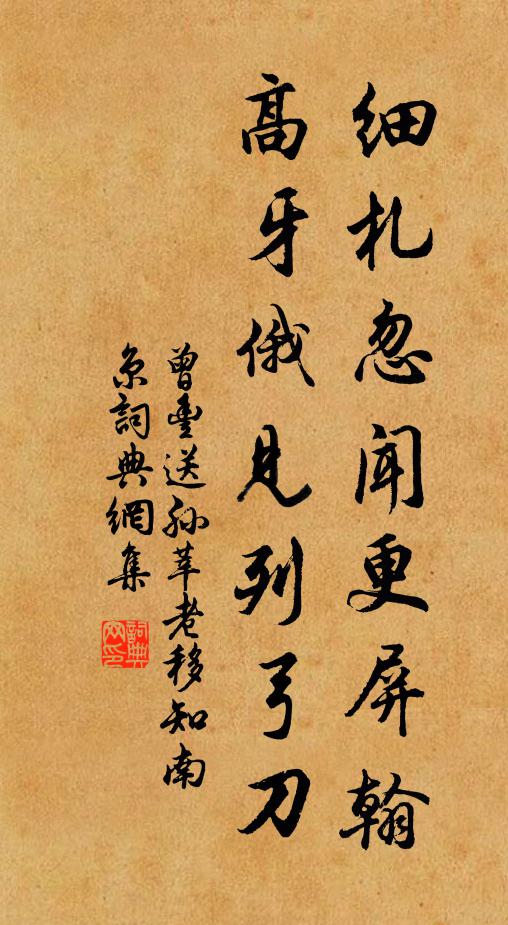 细札忽闻更屏翰
高牙俄见列弓刀
曾豐送孙莘老移知南
京詞典網集
詞典
网印